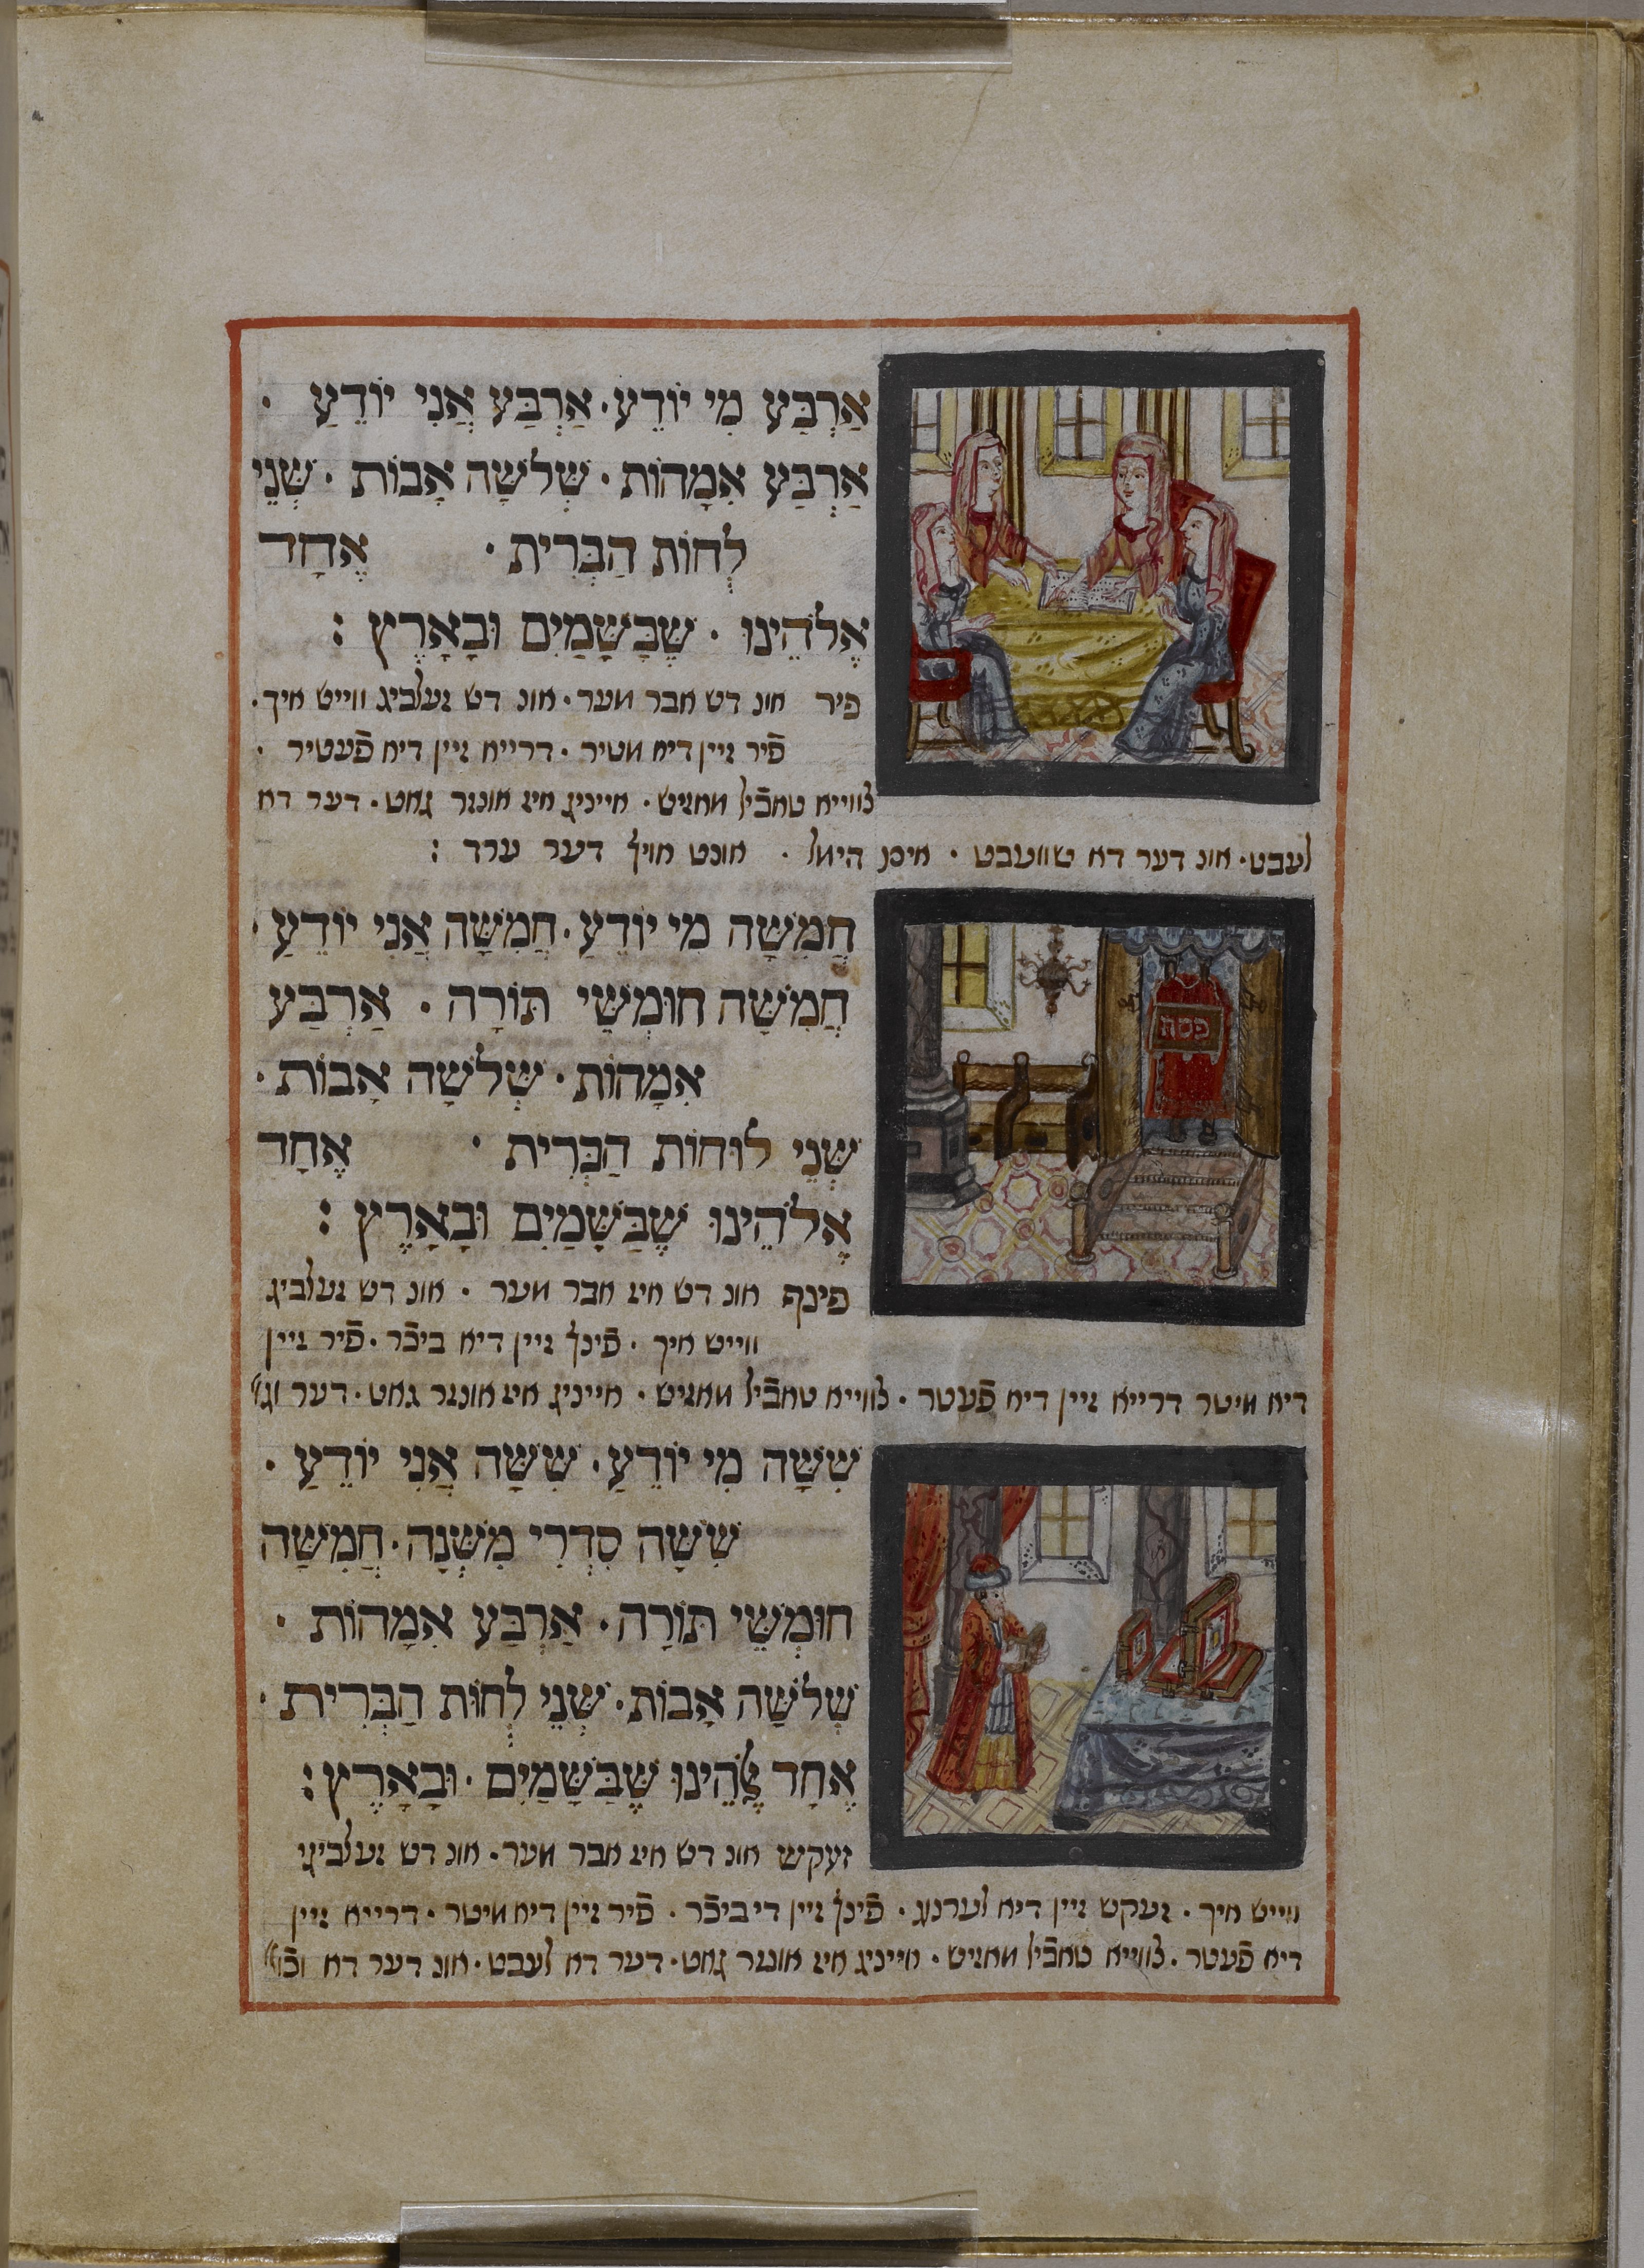 אַרְבַּע מִי יוֹדֵעַ · אַרְבַּע אֲנִי יוֹדֵעַ ·
אַרְבַּע אִמָהוֹת · שְׁלשָׁה אָבוֹת · שְׁנֵי
לְחוֹת הַבְּרִית · אֶחָד
אֱלֹהֵינוּ · שֶׁבַּשָּׁמַיִם וּבָאָרֶץ :
פיר אונ דש אבר מער · אונ דש זעלביג ווייש איך ·
פֿיר זיין דיא מטיר · דרייא זיין דיא פֿעטיר ·
צווייא טאבֿיל מאזיש · אייניג איז אונזר גאט · דער דא
לעבט · אונ דער דא שוועבט · אים הימל · אונט אויף דער ערד :
חֲמִשָּׁה מִי יוֹדֵעַ · חֲמִשָּׁה אֲנִי יוֹדֵעַ ·
חֲמִשָּׁה חוּמְשֵׁי תּוֹרָה · אַרְבַּע
אִמָהוֹת · שְׁלשָׁה אָבוֹת ·
שְׁנֵי לוּחוֹת הַבְּרִית · אֶחָד
אֱלֹהֵינוּ שֶׁבַּשָּׁמַיִם וּבָאָרֶץ :
פינף אונ דש איז אבר מער · אונ דש זעלביג
ווייש איך · פֿינף זיין דיא ביכֿר · פֿיר זיין
דיא מיטר דרייא זיין דיא פֿעטר · צווייא טאבֿיל מאזיש · אייניג איז אונזר גאט · דער וגו'
שִׁשָּׁה מִי יוֹדֵעַ · שִׁשָּׁה אֲנִי יוֹדֵעַ ·
שִׁשָּׁה סִדְרֵי מִשְׁנָה · חֲמִשָּׁה
חוּמְשֵׁי תּוֹרָה · אַרְבַּע אִמָהוֹת ·
שְׁלשָׁה אָבוֹת · שְׁנֵי לְחוֹת הַבְּרִית ·
אֶחָד אֱלֹהֵינוּ שֶׁבַּשָּׁמַיִם · וּבָאָרֶץ :
זעקש אונ דש איז אבר מער · אונ דש זעלביגי
ווייש איך · זעקש זיין דיא לערנונג · פֿינף זיין די ביכֿר · פֿיר זיין דיא מיטר · דרייא זיין
דיא פֿעטר · צווייא טאבֿיל מאזיש · אייניג איז אונזר גאט · דער דא לעבט · אונ דער דא וכֿו'
פסח